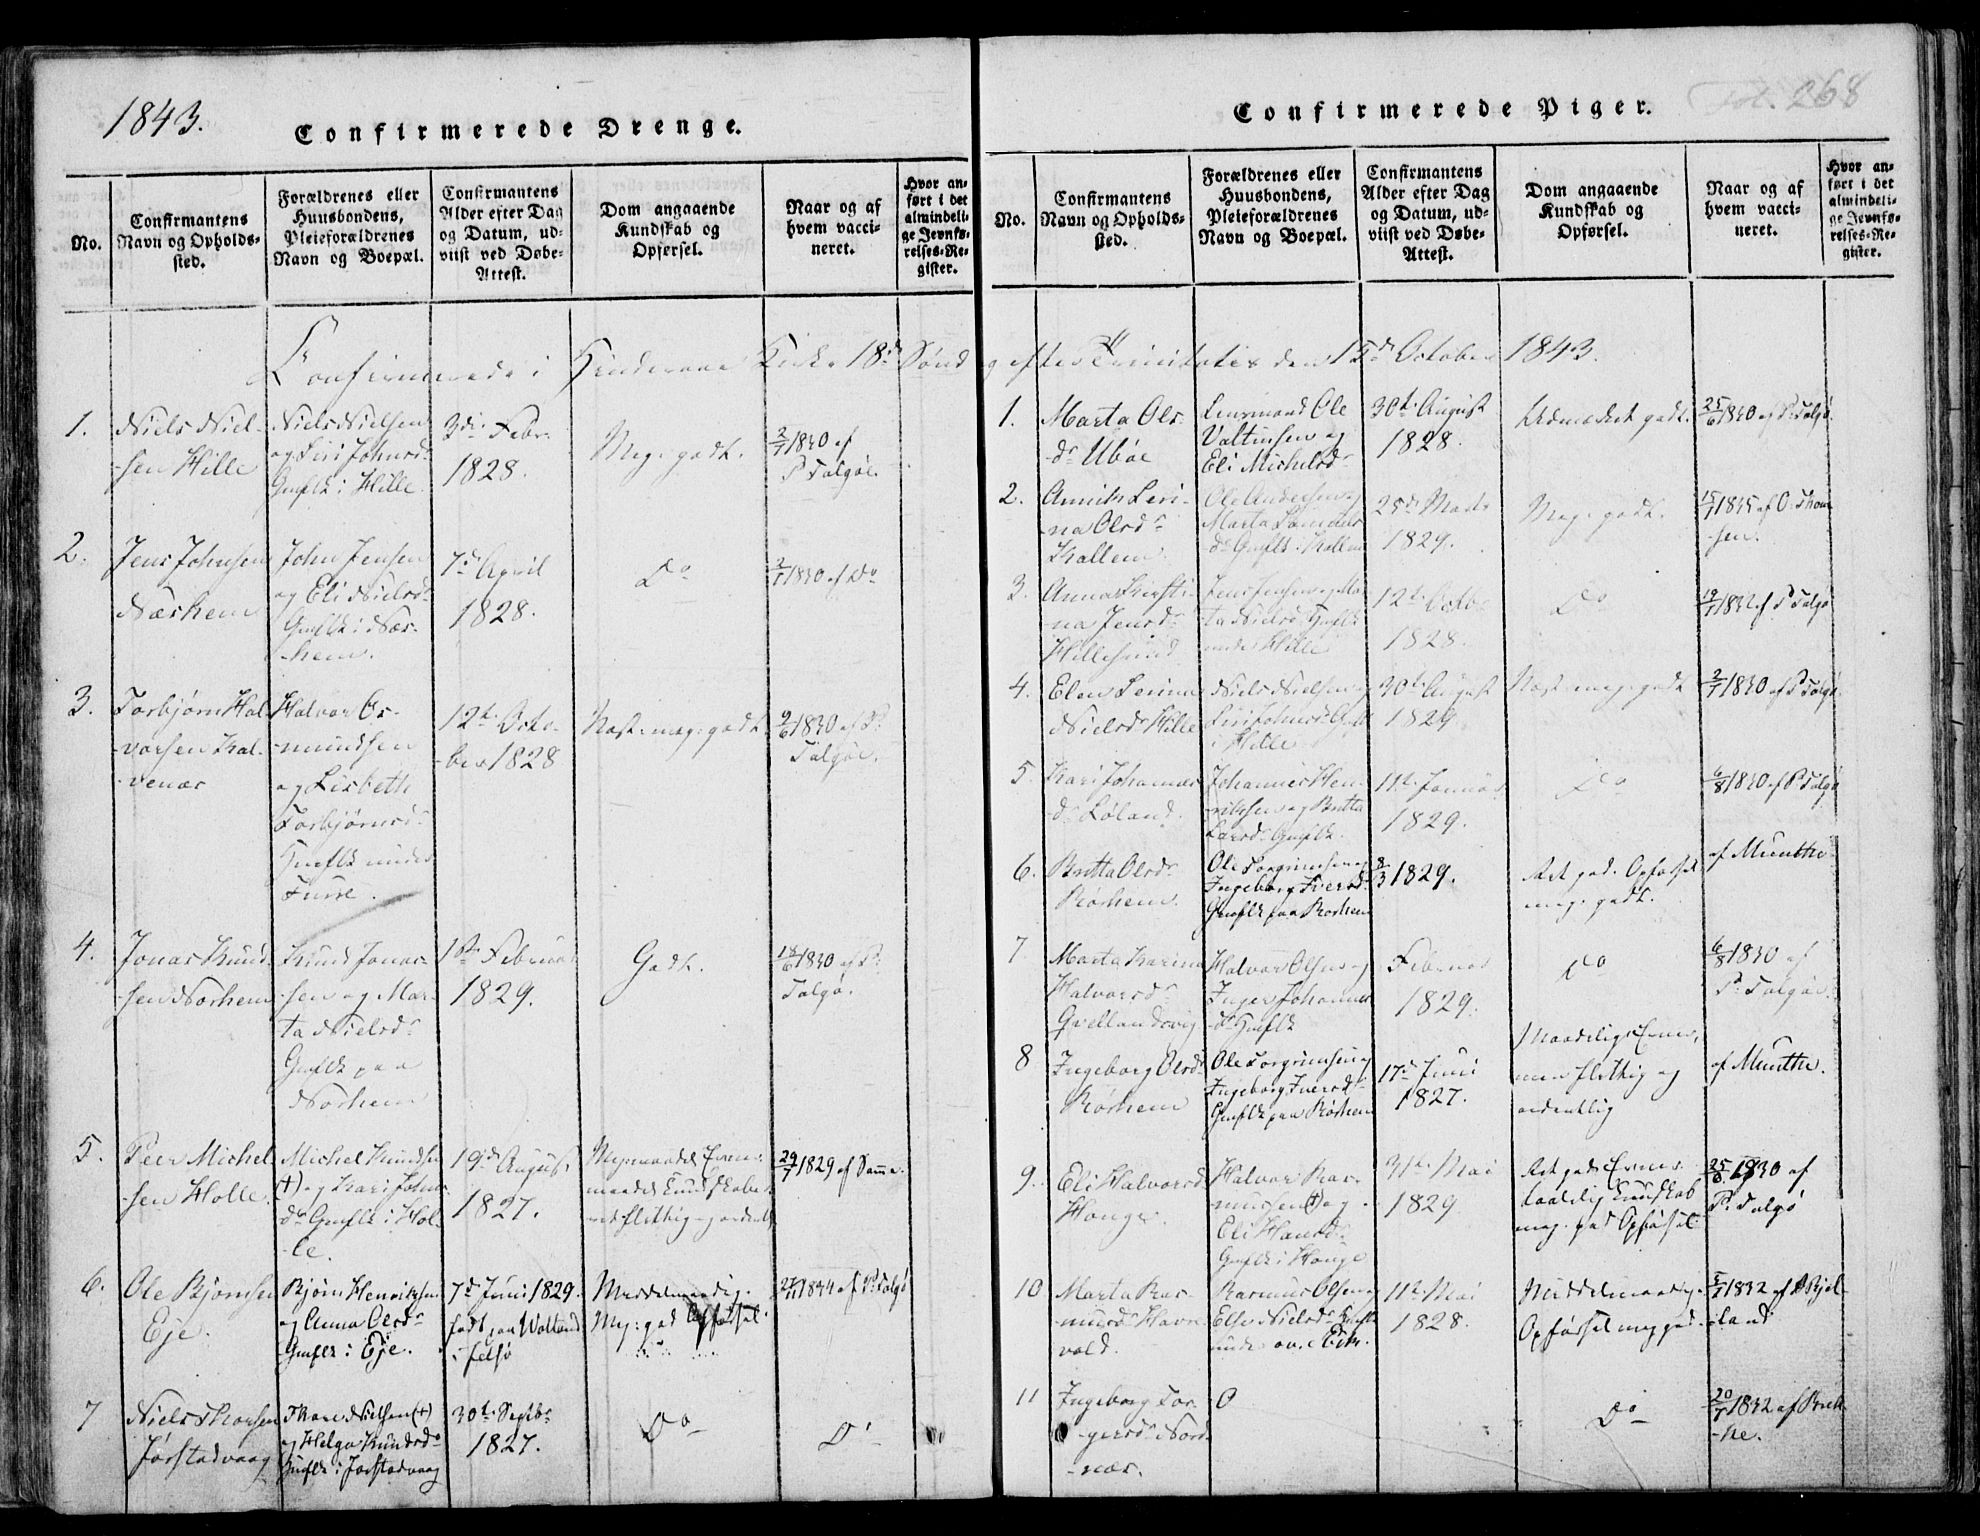 1843.
Confirmerede Drenge.
No.
Confirmantens
Navn og Opholds-
sted.
Forældrenes eller
Huusbondens,
Pleieforældrenes
Navn og Boepæl.
Confirmantens
Alder efter Dag
og Datum, ud-
viist ved Døbe-
Attest.
Dom angaaende
Kundskab og
Opførsel.
Naar og af
hvem vacci-
neret.
Hvor an-
ført i det
almindeli-
ge Jevnfø-
relses-Re-
gister.
Confirmerede i Hinderaae Kirke 18de Sønd
1.
Niels Niel-
-sen Hille
Niels Nielsen
og Siri Johnsdr
Gmflk i Hille.
3die Febr.
1828.
Meg. godt.
2/7 1830 af
P Talgøe
2.
Jens Johnsen
Næshem
John Jensen
og Eli Nielsdr
Gmflk i Næs-
-hem.
7de April
1828.
Do
2/7 1830 af Do
3.
Torbjørn Hal-
vorsen Kal-
-venæs
Halvor Os-
-mundsen
og Lisbeth
Torbjørnsdr
Hmflk under
Furre.
12te Octo-
-ber 1828
Næst. meg: godt.
9/6 1830 af P.
Talgøe.
4.
Jonas Knud-
-sen Norhem
Knud Jonas-
-sen og Mar-
ta Nielsdr
Gmflk paa
Norhem
1ste Februar
1829.
Godt.
18/6 1830 af P.
Talgø.
5.
Peer Michel-
sen Holle
Michel Knudsen
(+) og Kari Johns-
dr Gmflk i Hol-
-le.
19de August
1827.
29/7 1829 af Samme.
6.
Ole Bjørnsen
Eje.
Bjørn Henriksen
og Anna Olsdr
Gmflk i Eje.
7de Juni 1829.
født paa
Middelmaadig.
Meg: god Opførsel.
27/11 1844 af P. Talgø
7
Niels Thorsen
Jørstadvaag
Thore Nielsen (+)
og Helga Knudsdr
Gmflk i Jørstadvaag
30te Septbr
1827.
Do
Do
Fol. 268
Confirmerede Piger.
No.
Confirmantens
Navn og Opholds-
sted.
Forældrenes eller
Huusbondens,
Pleieforældrenes
Navn og Boepæl.
Confirmantens
Alder efter Dag
og Datum, ud-
viist ved Døbe-
Attest.
Dom angaaende
Kundskab og
Opførsel.
Naar og af
hvem vacci-
neret.
Hvor an-
ført i det
almindeli-
ge Jevnfø-
relses-Re-
gister.
g efter Trinitatis den 15de October 1843.
1.
Marta Ols-
dr Ubøe
Lensmand Ole
Valtinsen og
Eli Michelsdr
30te August
1828.
Udmærket godt.
25/6 1830 af P. Talgø.
2.
Seri-
na Olsdr
Kallem.
Ole Andersen og
Marta
dr Gmflk i Kallem
25de Marts
1829.
Meg. godt.
15/7 1835 af O. Thom-
-sen.
3.
Anna Kirsti-
na Jensdr
Hillesund
Jens Jensen og Mar-
ta Nielsdr Hmflk
under Hille
12te Octbr
1828.
Do
19/7 1832 af P Talgø
4.
Elen Serina
Nielsdr Hille
Niels Nielsen og
Siri Johnsdr Gmflk
i Hille
30te August
1829
Næst meg: godt
2/7 1830 af P Talgø
5
Kari Johannes-
dr Løland.
Johannes Hen-
-riksen og Britta
Larsdr Gmflk.
11te Januar
1829.
Do
6/8 1830 af P. Talgø
6.
Britta Olsdr
Rørhem.
Ole Torgrimsen og
Ingeborg Iversdr
Gmflk paa Rørhem
8/3 1829.
Ret god. Opførsel
meg: godt.
af Munthe.
7
Marta Karina
Halvorsdr
Qvellandsvig
Halvor Olsen og
Inger Johannes-
dr Hmflk
Februar
1829.
Do
6/8 1830 af
P. Talgøe.
8
Ingeborg Olsdr
Rørhem
Ole Torgrimsen og
Ingeborg Iversdr
Gmflk paa Rørhem
17de Juni
1827.
Maadelige Evner,
men flittig og
ordentlig
af Munthe.
9.
Eli Halvorsd
Houge.
Halvor Ras-
mussen (+) og
Eli Hansdr
Gmflk i Houge
31te Mai
1829
Ret gode Evner.
taalelig Kundskab
meg. god Opførsel
25/6 1830 af
P. Talgø
10
Marta Ras-
musdr Havre-
vold.
Rasmus Olsen og
Else Nielsdr Hmflk
under
11te Mai
1828.
Middelmaadig.
Opførsel meg god.
1832 af
-land
11
Ingeborg Tor-
-gersdr Nord-
-næs.
O
Do
20/7 1832 af Brek-
-ke.